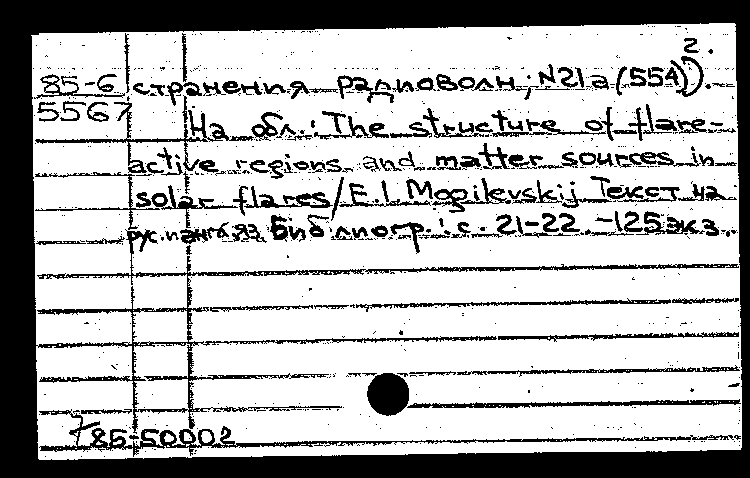 2.
85-6 странения радиоволн; N21a (554)).
5567 На обл.: The structure of flare-
active regions and matter sources in
solar flares/E.I. Mogilevskij Текст на
рус. и англ. яз. Библиогр.: с. 21-22. -125экз.
785-50002